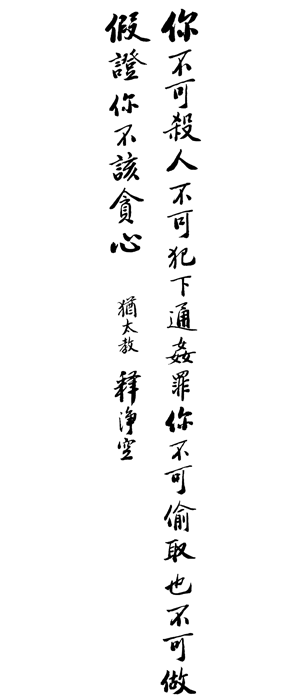 你不可殺人不可犯下通姦罪你不可偷取也不可做
假證你不該貪心
猶太教 釋淨空